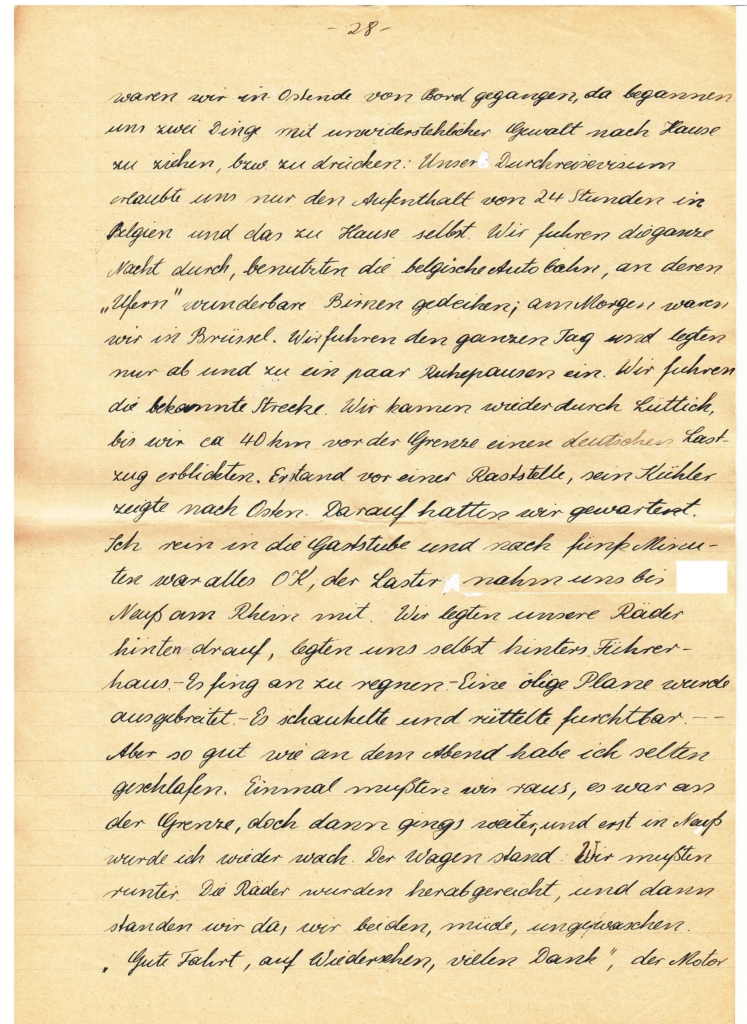 - 28 -
waren wir in Ostende von Bord gegangen, da begannen
uns zwei Dinge mit unwiderstehlicher Gewalt nach Hause
zu ziehen, bzw. zu drücken: Unser Durchreisevisum
erlaubte uns nur den Aufenthalt von 24 Stunden in
Belgien und das zu Hause selbst. Wir fuhren die ganze
Nacht durch, benutzten die belgische Autobahn, an deren
„Ufern" wunderbare Birnen gedeihen; am Morgen waren
wir in Brüssel. Wir fuhren den ganzen Tag und legten
nur ab und zu ein paar Ruhepausen ein. Wir fuhren
die bekannte Strecke. Wir kamen wieder durch Lüttich,
bis wir ca 40 km vor der Grenze einen deutschen Last-
zug erblickten. Er stand vor einer Raststelle, sein Kühler
zeigte nach Osten. Darauf hatten wir gewartent.
Ich rein in die Gaststube und nach fünf Minu-
ten war alles OK, der Laster nahm uns bis
Neuß am Rhein mit. Wir legten unsere Räder
hinten drauf, legten uns selbst hinters Führer-
haus. - Es fing an zu regnen - Eine ölige Plane wurde
ausgebreitet. - Es schaukelte und rüttelte furchtbar. --
Aber so gut wie an dem Abend habe ich selten
geschlafen. Einmal mußten wir raus, es war an
der Grenze, doch dann gings weiter, und erst in Neuß
wurde ich wieder wach. Der Wagen stand. Wir mußten
runter. Die Räder wurden herabgereicht, und dann
standen wir da, wir beiden, müde, ungewaschen.
„Gute Fahrt, auf Wiedersehen, vielen Dank", der Motor